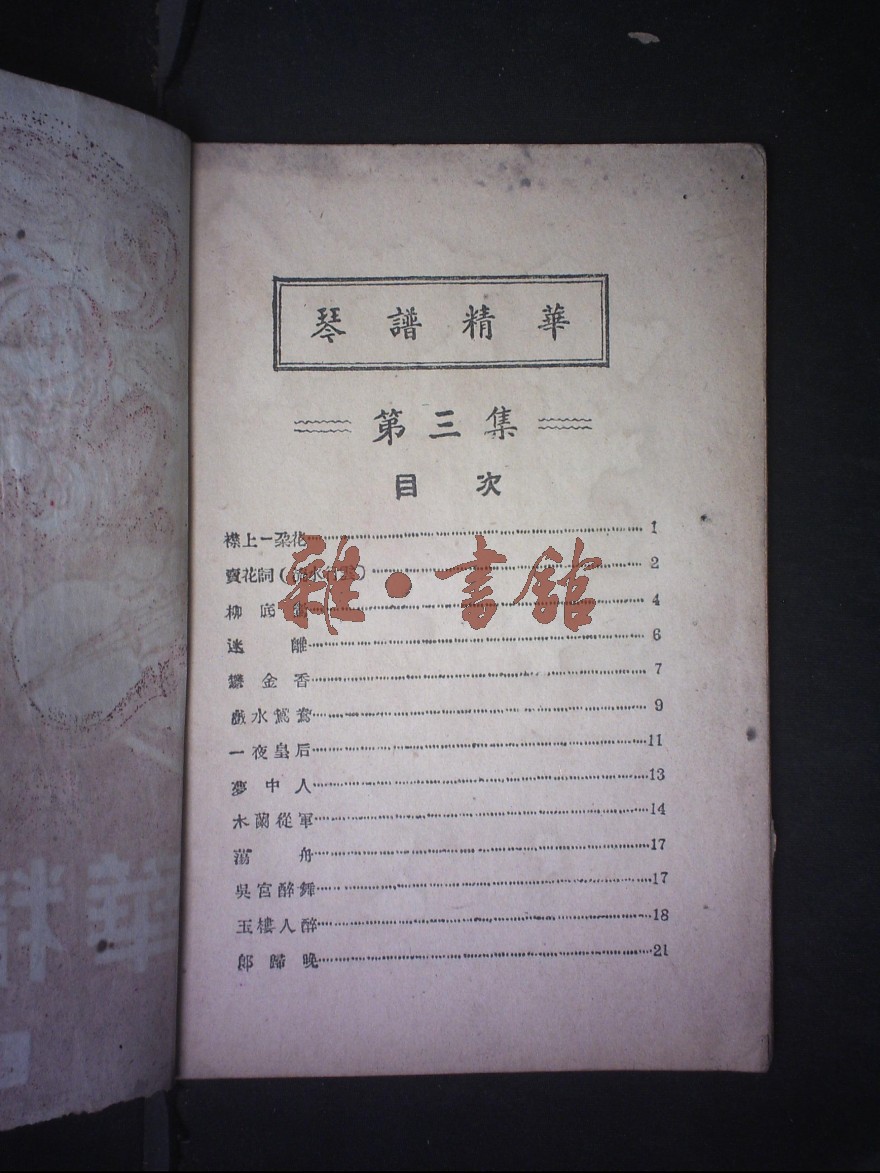 琴譜精華
第三集
目次
襟上一朶花 1
賣花詞( 水行雲) 2
柳底 4
迷離 6
鬱金香 7
戲水鴛鴦 9
一夜皇后 11
夢中人 13
木蘭從軍 14
蕩舟 17
吳宮醉舞 17
玉樓人醉 18
郎歸晚 21
雜·書館
華精